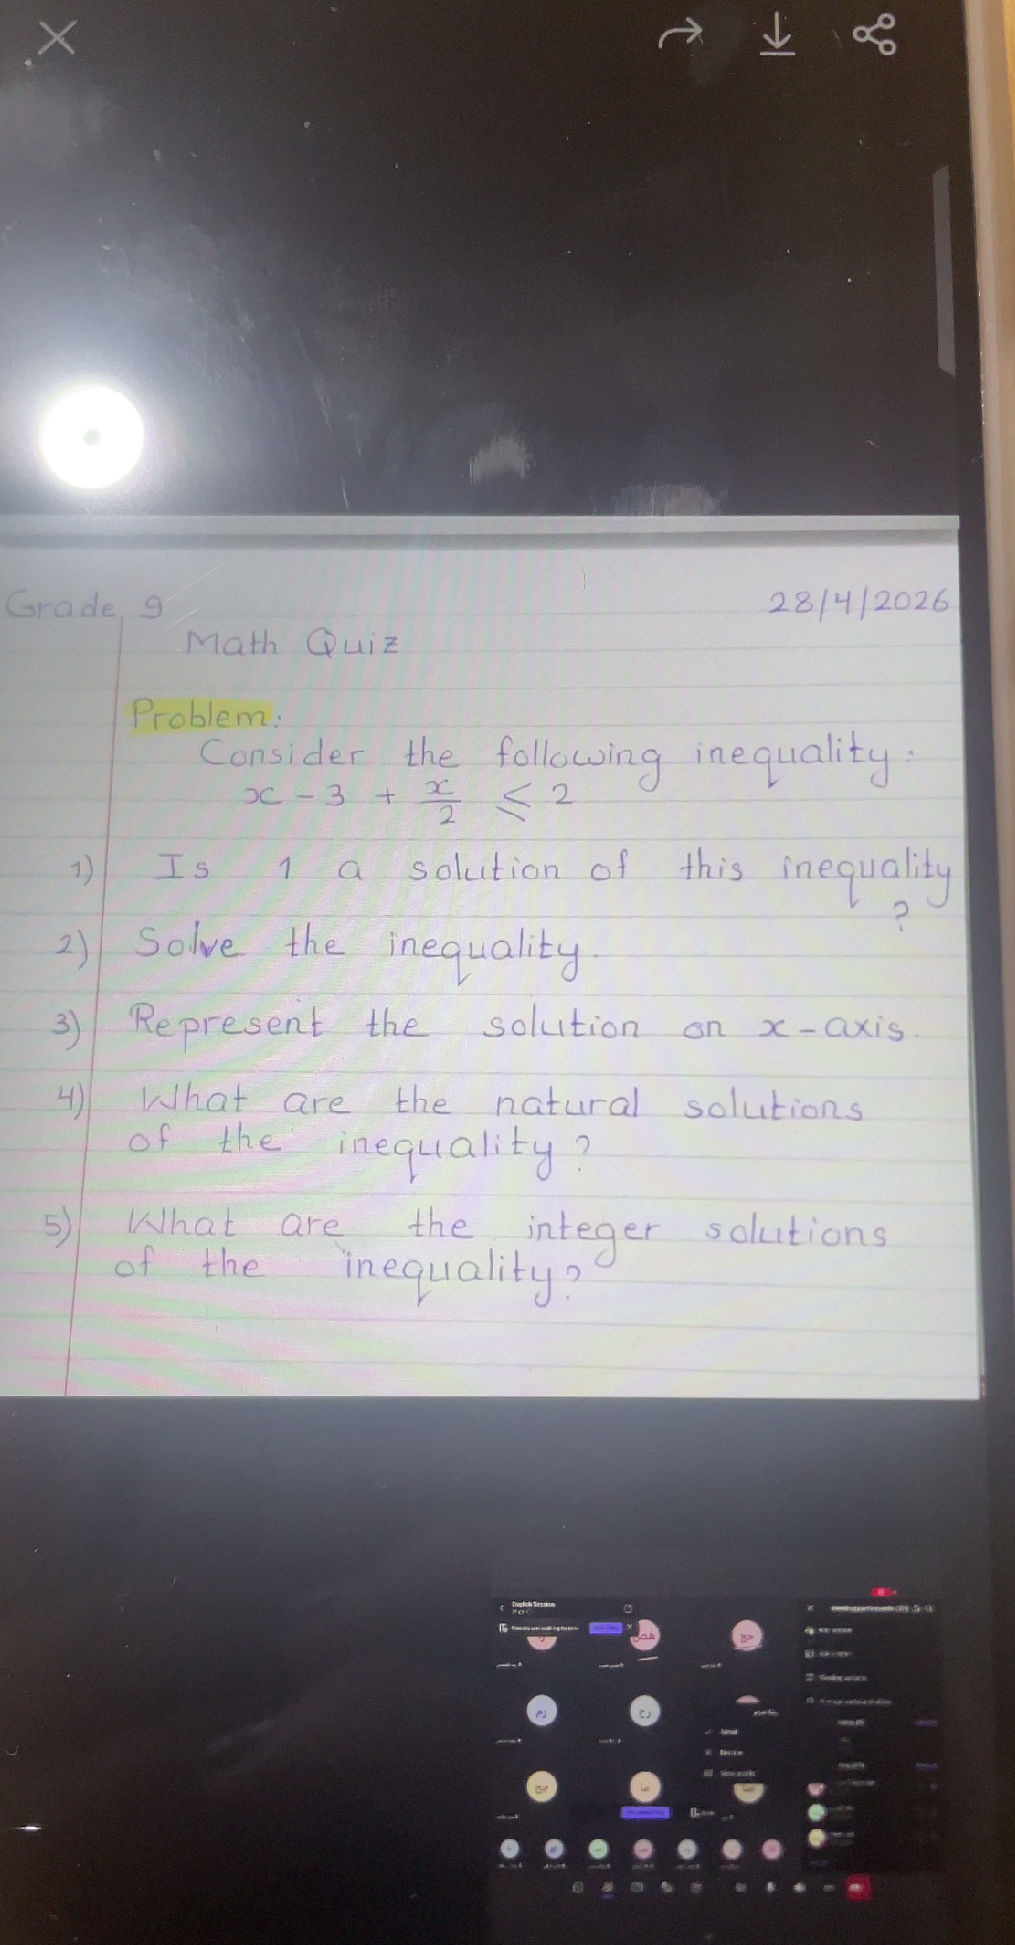 Grade 9 28/4/2026
Math Quiz
Problem:
Consider the following inequality:
x - 3 + x/2 ≤ 2
1) Is 1 a solution of this inequality
?
2) Solve the inequality.
3) Represent the solution on x-axis.
4) What are the natural solutions
of the inequality?
5) What are the integer solutions
of the inequality?
English Session